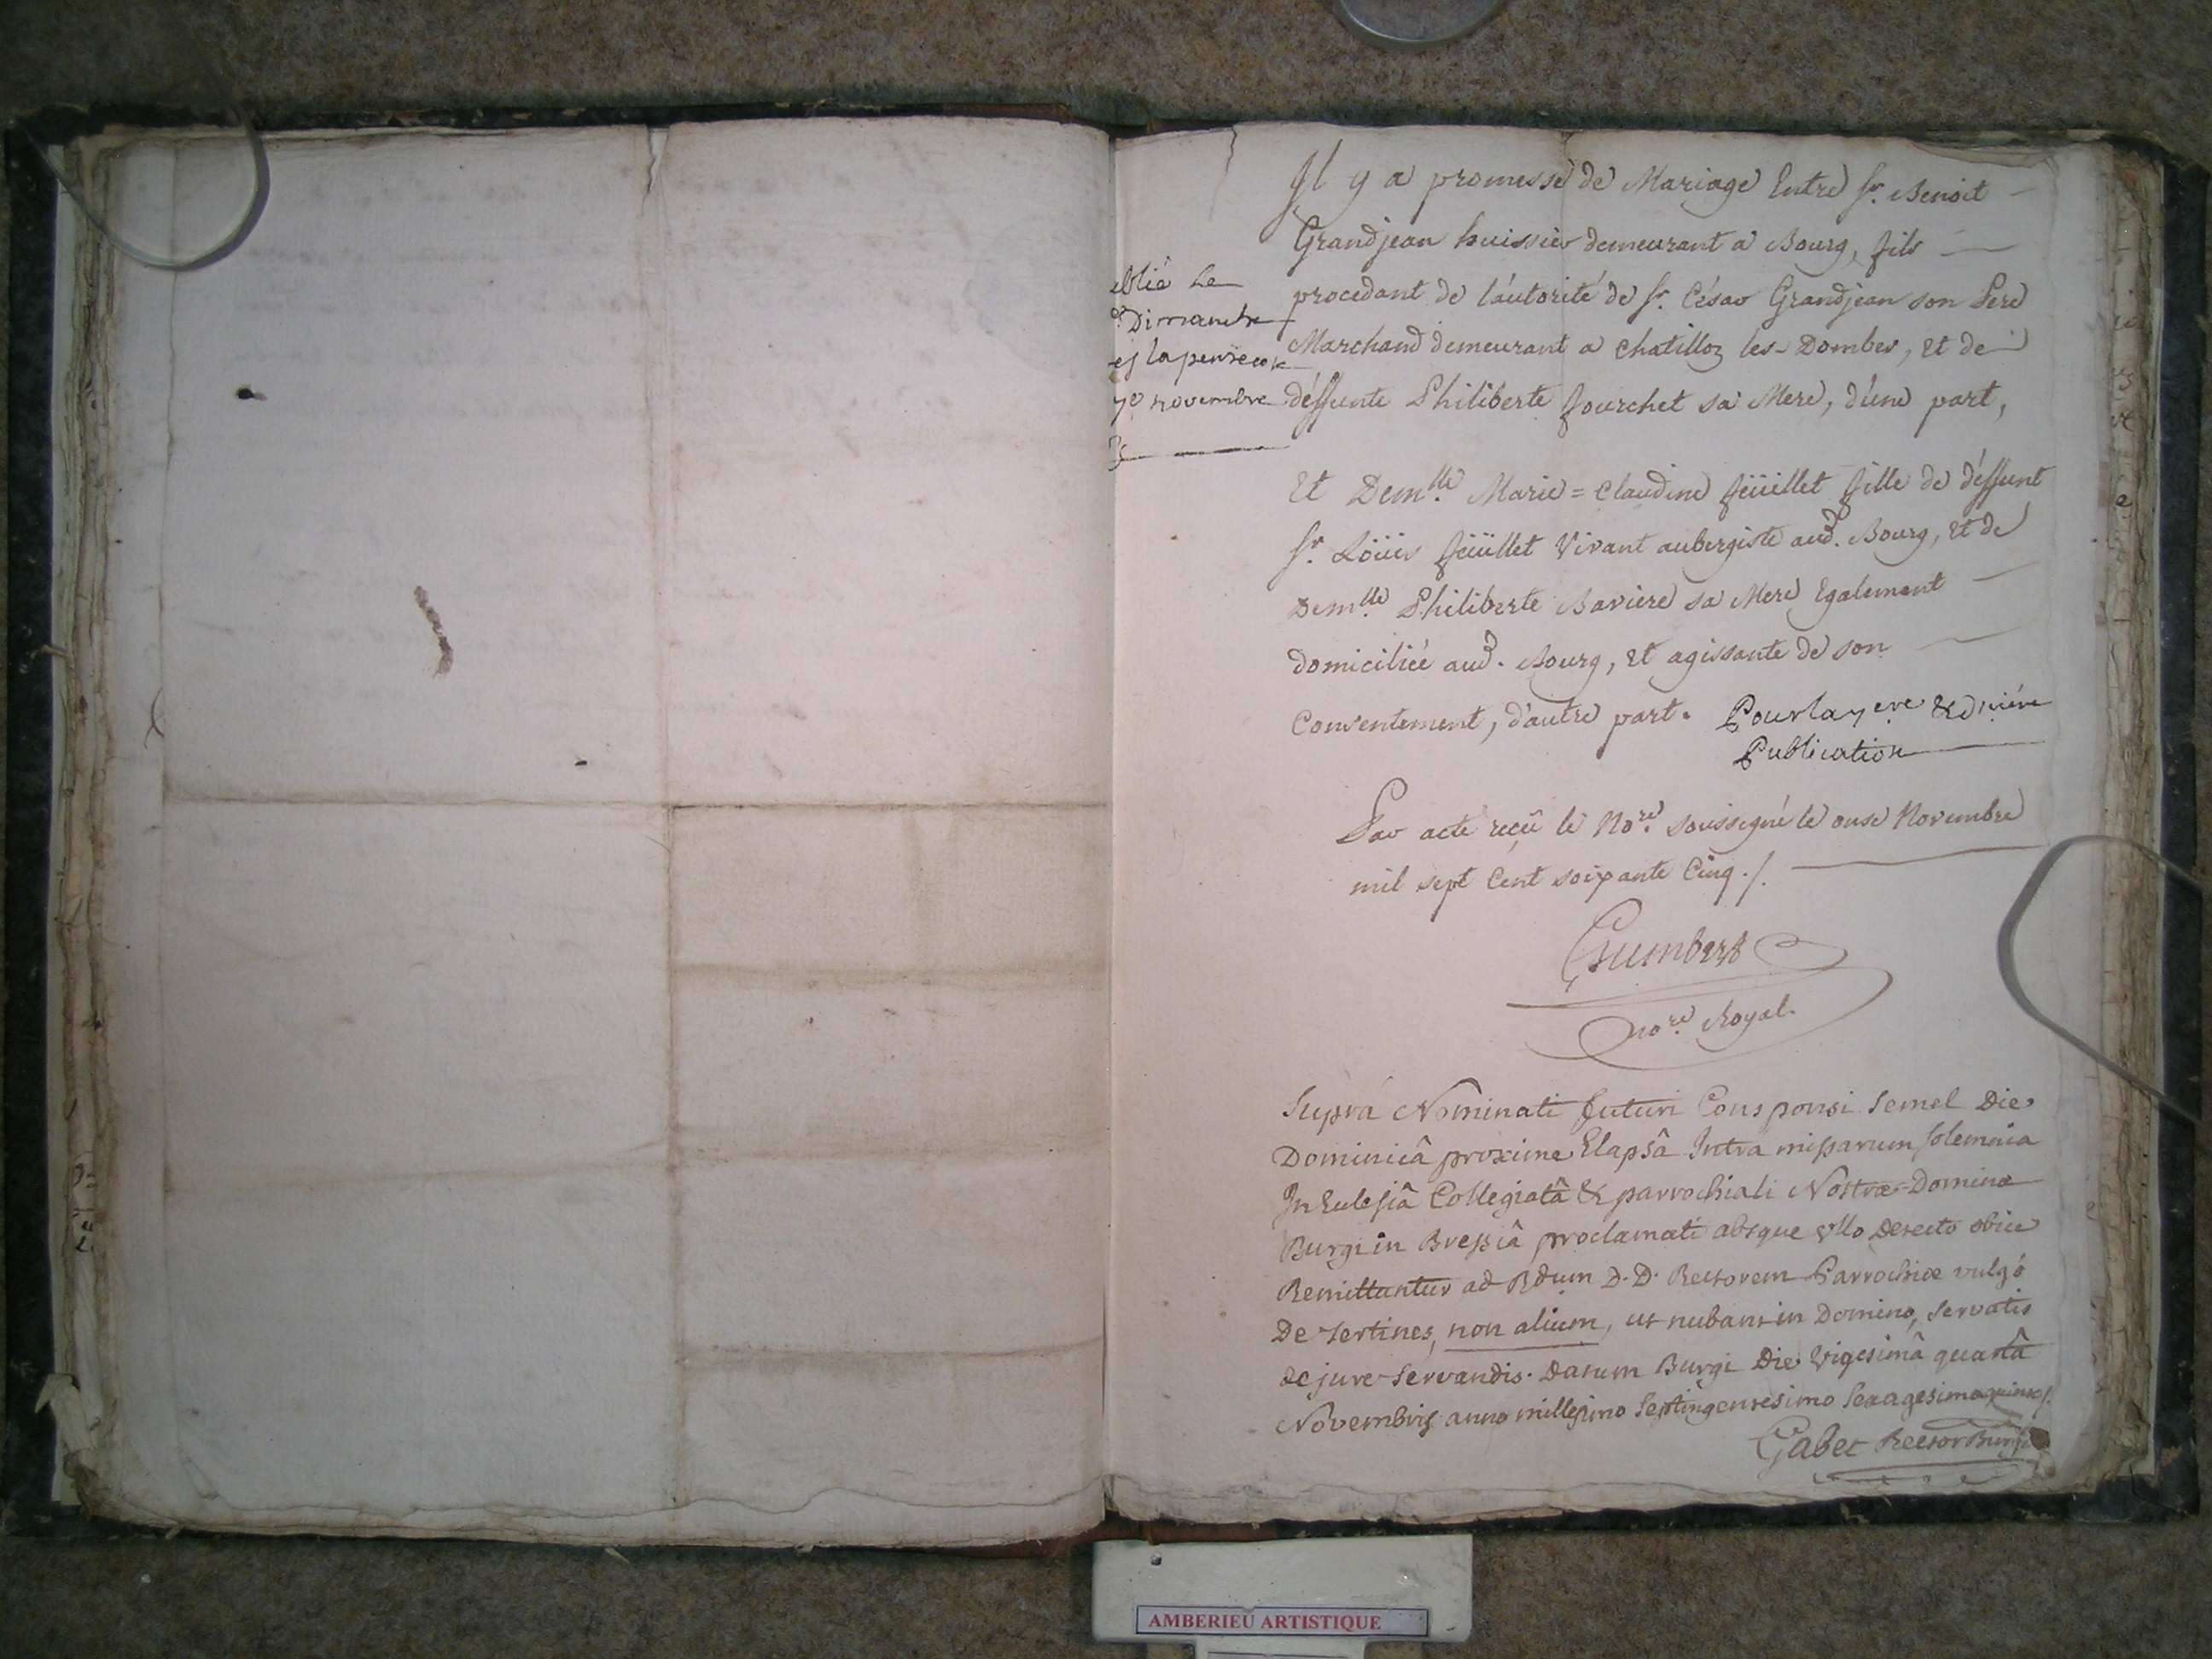 Il y a promesse de Mariage Entre Sr. Benoit
Grandjean huissier demeurant a Bourg, fils
procedant de l'autorité de Sr. César Grandjean son Pere
Marchand demeurant a Chatillon les-Dombes, et de
déffunte Philiberte fourchet sa Mere, d'une part,
ublié Le
Dimanche
es la pentecote
novembre
Et Demlle. Marie=Claudine feüillet fille de déffunt
Sr. Loüis feüillet Vivant aubergiste aud. Bourg, et de
Demlle. Philiberte Baviere sa Mere Egalement
domiciliée aud. Bourg, et agissante de son
Consentement, d'autre part. Pour la 1ere & dniére
Publication
Par acte reçû le Nore. soussigné le onse Novembre
mil sept Cent soixante Cinq ./.
Chumbert
nore. Royal.
Suprà Nominati futuri Consponsi Semel Die
Dominicâ proxime Elapsâ Intra missarum solemnia
In Ecclesiâ Collegiatâ & parrochiali Nostræ-Dominæ
Burgi in Bressiâ proclamati absque vllo Detecto obice
Remittuntur ad Rdum D. D. Rectorem Parrochiæ vulgó
De Tertines, non alium, ut nubant in Domino, servatis
de jure Servandis. Datum Burgi Die Vigesimâ quartâ
Novembris anno millesimo Septingentesimo Sexagesimo quinto /.
Gabet Rector Burgi
AMBERIEU ARTISTIQUE